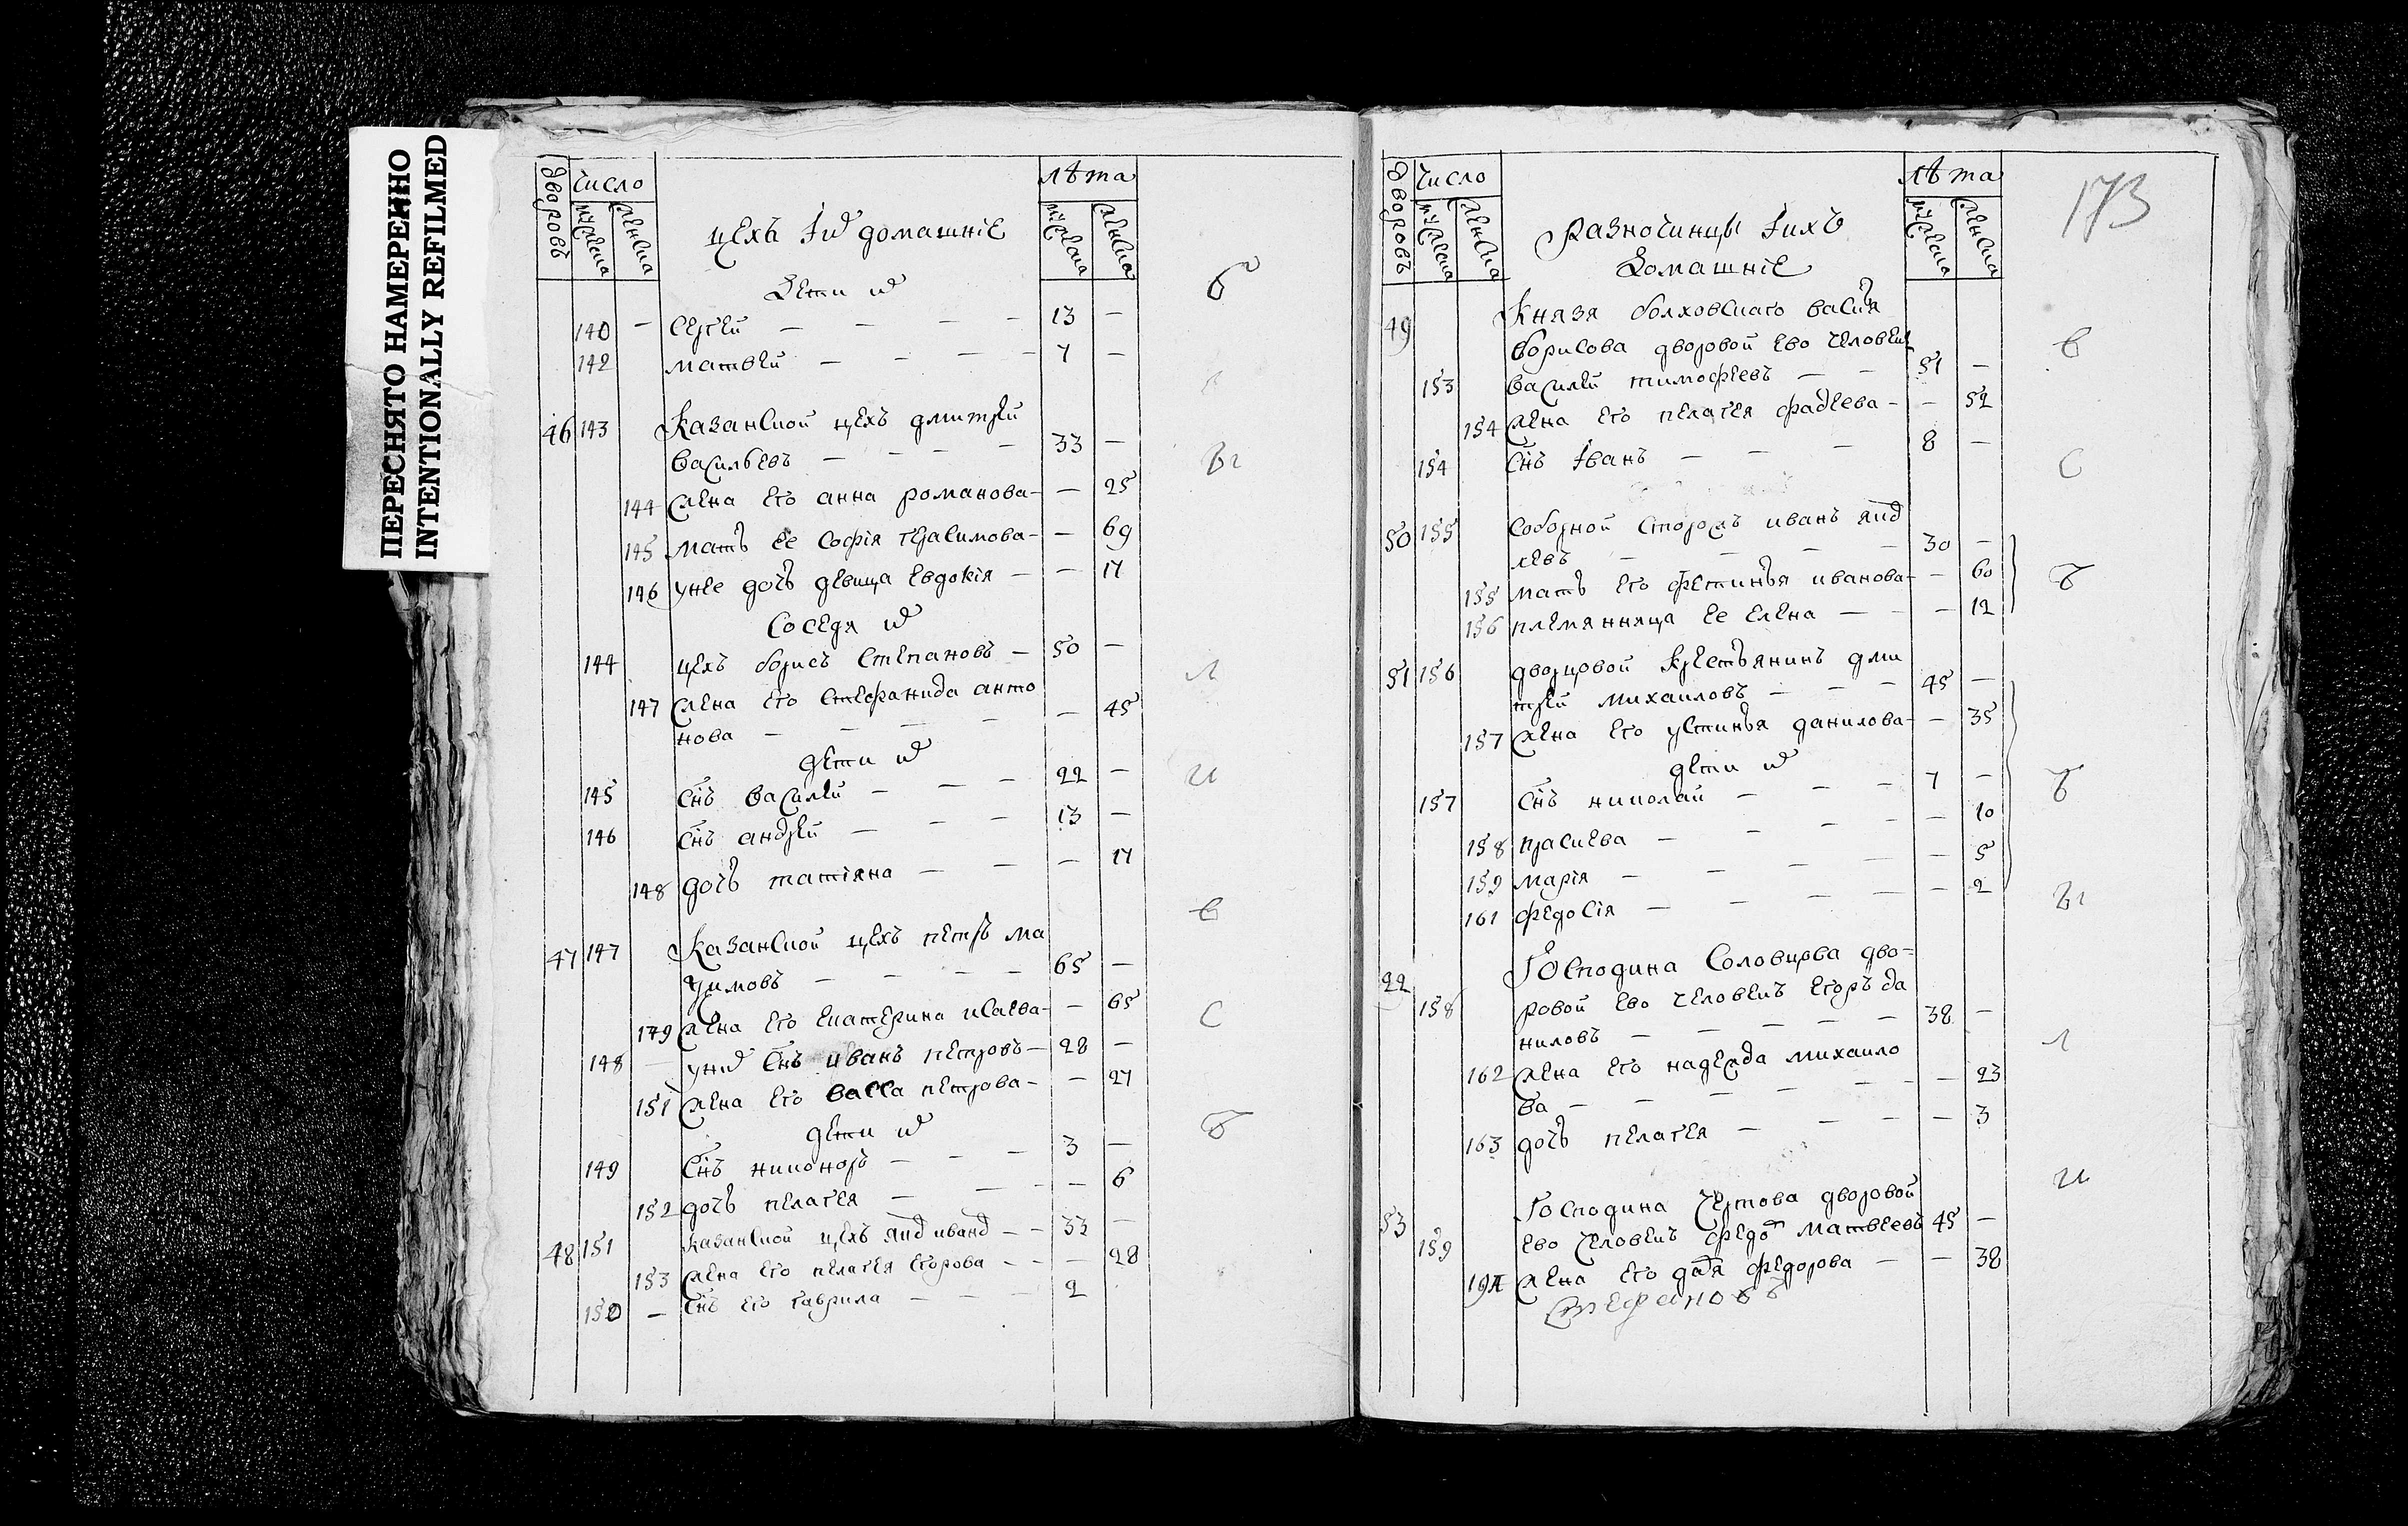 ПЕРЕСНЯТО НАМЕРЕННО
INTENTIONALLY REFILMED
дворовъ число лѣта
мужеска женска цехъ и домашние мужеска женска
Дети их
140 — Сергеи — — — — 13 —
142 матвеи — — — — 7 —
46 143 Казанской цехъ дмитреи
васильевъ — — — — 33 —
144 жена его анна романова — — 25
145 мать ее софия герасимова — — 69
146 у нее дочь девица евдокия — — 17
Соседи их
144 цехъ борисъ степановъ — 50 —
147 жена его стефанида анто
нова — — — — — 45
дети их
145 снъ василеи — — — 22 —
146 снъ андреи — — — 13 —
148 дочь татияна — — — 17
47 147 Казанской цехъ петръ ма
ѯимовъ — — — — 65 —
149 жена его екатерина исаева — — 65
148 — у них снъ иванъ петровъ — 28 —
151 жена его васса петрова — — 27
дети их
149 снъ никоноръ — — — 3 —
152 дочь пелагея — — — 6
48 151 казанской цехъ яков иванов — — 33 —
153 жена его пелагея егорова — — — 28
150 — снъ его гаврила — — — 2
б
вг
л
и
в
с
б
173
дворовъ число лѣта
мужеска женска Разночинцы и ихъ мужеска женска
Домашние
49 Князя болховскаго васи͡лья
борисова дворовой ево человекъ
153 василеи тимофеевъ — — 51 —
154 жена его пелагея фадеева — — 52
154 снъ иванъ — — — 8 —
50 155 соборной сторожъ иванъ яков
левъ — — — — 30 —
155 мать его фетинья иванова — — 60
156 племянница ее елена — — — 12
51 156 дворцовой крестьянинъ дми
треи михаиловъ — — — 45 —
157 жена его устинья данилова — — 35
дети их
157 снъ николаи — — — 7 —
158 прасковья — — — — 10
159 мария — — — — 5
161 федосия — — — — 2
22 Господина Соловцова дво=
158 ровой ево человекъ егоръ да
ниловъ — — — — — 38 —
162 жена его надежда михаило
ва — — — — — 23
163 дочь пелагея — — — — 3
53 Господина Чертова дворовой
159 ево человекъ федор матвеевъ 45 —
жена его дарья федорова — — 38
Стефановъ
в
с
б
б
вг
л
и